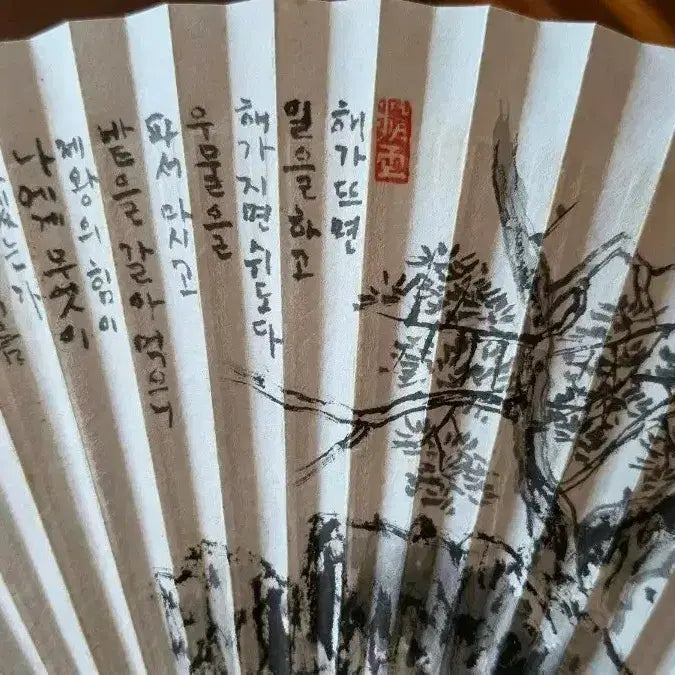 해가 뜨면
일을 하고
해가 지면 쉬도다
우물을
파서 마시고
밭을 갈아 먹으니
제왕의 힘이
나에게 무엇이
있는가